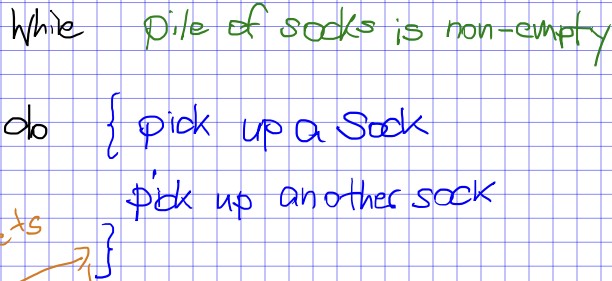 While pile of socks is non-empty
do { pick up a Sock
pick up another sock
}